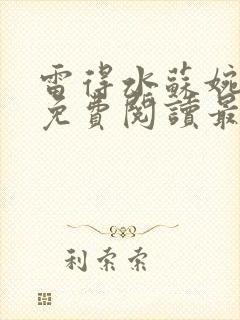 雷得水蘇婉
免費閱讀最
利索索